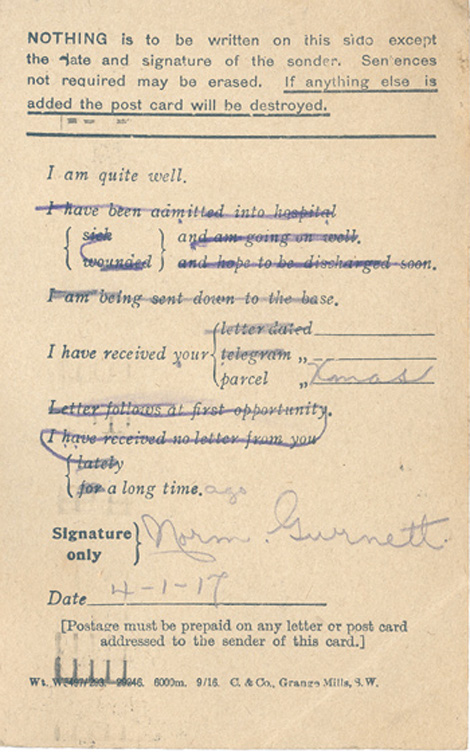 NOTHING is to be written on this side except
the date and signature of the sender. Sentences
not required may be erased. If anything else is
added the post card will be destroyed.
I am quite well.
I have been admitted into hospital
{ sick } and am going on well.
{ wounded } and hope to be discharged soon.
I am being sent down to the base.
I have received your { letter dated
telegram „
parcel „ Xmas
Letter follows at first opportunity.
I have received no letter from you
{ lately
for a long time. ago
Signature only } Norm. Gurnett.
Date 4-1-17
[Postage must be prepaid on any letter or post card
addressed to the sender of this card.]
Wt. 29246. 6000m. 9/16. C. & Co., Grange Mills, S.W.